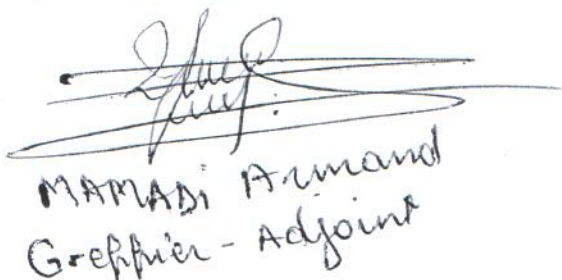 MAMADI Armand
Greffier - Adjoint